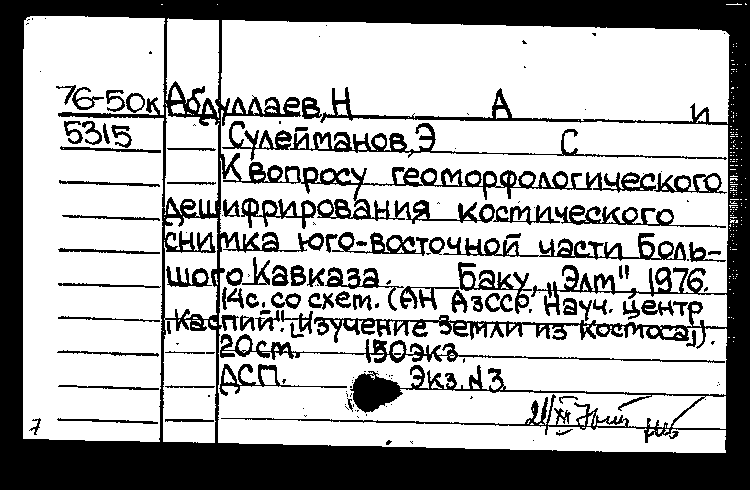 76-50к Абдуллаев, Н А и
5315 Сулейманов, Э С
К вопросу геоморфологического
дешифрирования костического
снимка юго-восточной части Боль-
шого Кавказа. Баку, „Элм", 1976.
14с. со схем. (АН АзССР. Науч. центр
„Каспий". [Изучение Земли из Космоса]).
20см. 150экз.
ДСП. Экз. №3
7